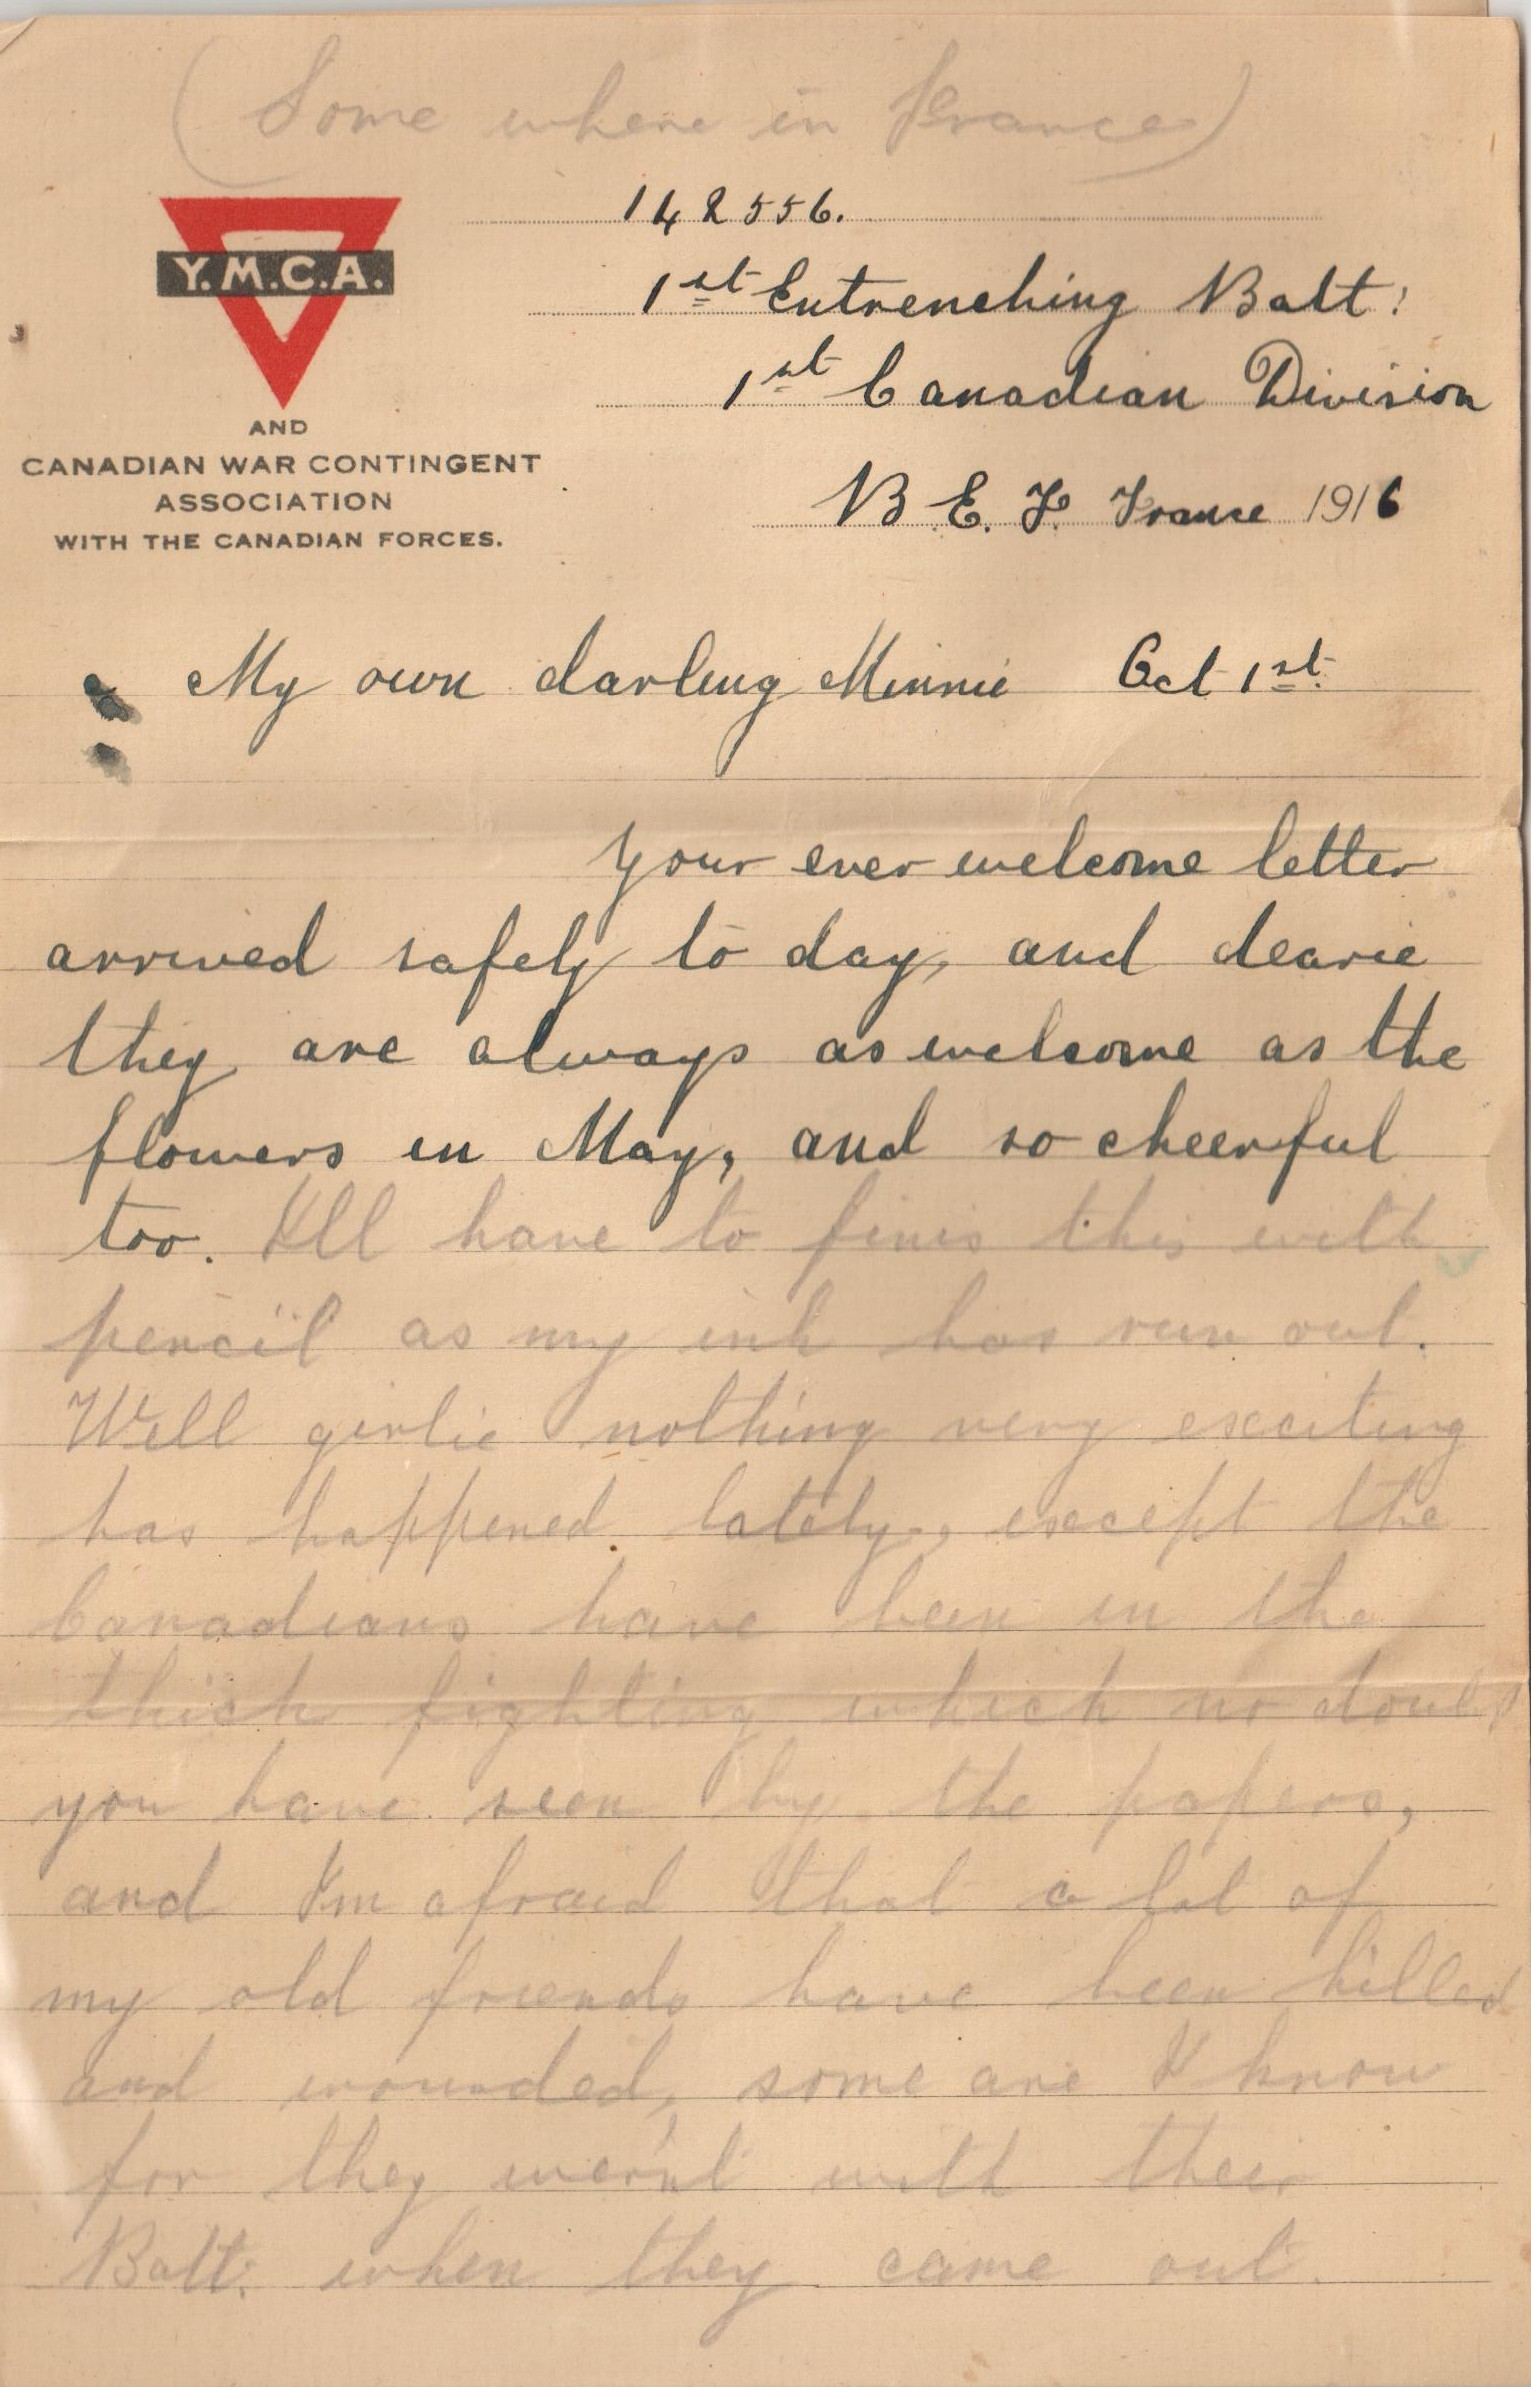 (Some where in France)
142556.
1st Entrenching Batt:
1st Canadian Division
B. E. F. France 1916
Y.M.C.A.
AND
CANADIAN WAR CONTINGENT
ASSOCIATION
WITH THE CANADIAN FORCES.
My own darling Minnie Oct 1st
Your ever welcome letter
arrived safely to day, and dearie
they are always as welcome as the
flowers in May, and so cheerful
too. I'll have to finis this with
pencil as my ink has run out.
Well girlie nothing very exciting
has happened lately, except the
Canadians have been in the
thick fighting which no doubt
you have seen by the papers,
and I'm afraid that a lot of
my old friends have been killed
and wounded, some are I know
for they wer'nt with their
Batt: when they came out.